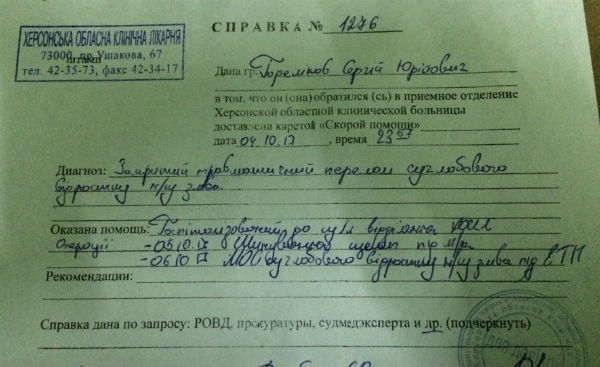 ХЕРСОНСЬКА ОБЛАСНА КЛІНІЧНА ЛІКАРНЯ
штамп
73000, пр. Ушакова, 67
тел. 42-35-73, факс 42-34-17
СПРАВКА № 1276
Дана гр. Сергій Юрійович
в том, что он (она) обратился (сь) в приемное отделение
Херсонской областной клинической больницы
доставлена каретой «Скорой помощи»
дата 04.10.17, время 23
Диагноз: Закритий травматичний перелом суглобового
відростку н/щ зліва
Оказана помощь: Госпіталізований до відділення
Операції - 05.10.17 Шинування щелеп під м/а
- 06.10.17 МОС суглобового відростку н/щ зліва під ВТН
Рекомендации:
Справка дана по запросу: РОВД, прокуратуры, судмедэксперта и др. (подчеркнуть)